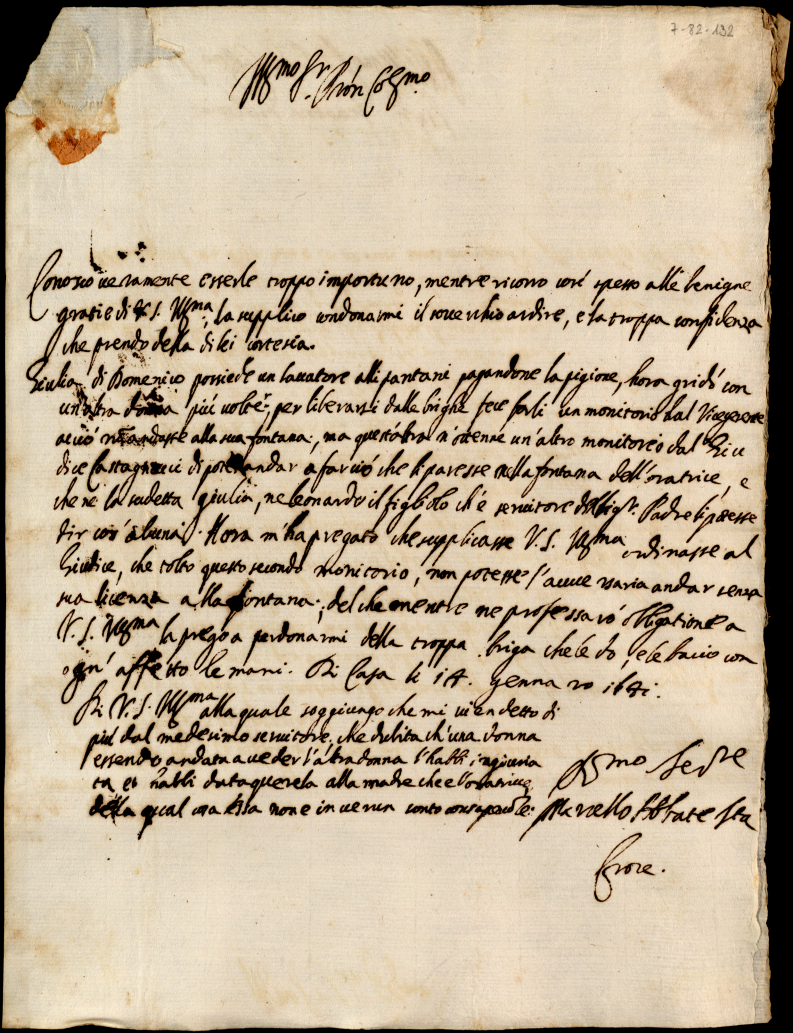 7-82-132
Ill.mo Sr. Pron Col.mo
Conosco veramente esserle troppo importuno, mentre ricorro così spesso alle benigne
gratie di V.S. Ill.ma, la supplico condonarmi il soverchio ardire, e la troppa confidenza
che prendo della di lei cortesia.
Giulia di Domenico possiede un lavatore alli pantani pagandone la pigione, hora gridò con
un'altra donna più volte, per liberarsi dalle brighe fece farli un monitorio dal Vicegerente
acciò andasse alla sua fontana, ma quest'altra n'ottenne un'altro monitorio dal Giu
dice di poter andar a far ciò che li paresse nella fontana dell'oratrice, e
che ne la sudetta giulia, ne leonardo il figliolo ch'è servitore Padre li potesse
dir cos'alcuna. Hora m'ha pregato che supplicasse V.S. Ill.ma ordinasse al
Giudice, che tolto questo secondo monitorio, non potesse l'avversaria andar senza
sua licenza alla fontana; del che mentre ne professarò obligatione a
V.S. Ill.ma la prego a perdonarmi della troppa briga che le do, e le bacio con
ogn' affetto le mani. Di Casa li 14. Gennaro 1641.
Di V.S. Ill.ma alla quale soggiungo che mi vien detto di
più dal medesimo servitore, che ch'una donna
essendo andata a veder l'altra donna l'habbi ingiuria
ta, et habbi data querela alla madre che è l'oratrice
della qual cosa essa non è in verun conto consapevole.
Serre
Marcello Abbate Sta
Croce.